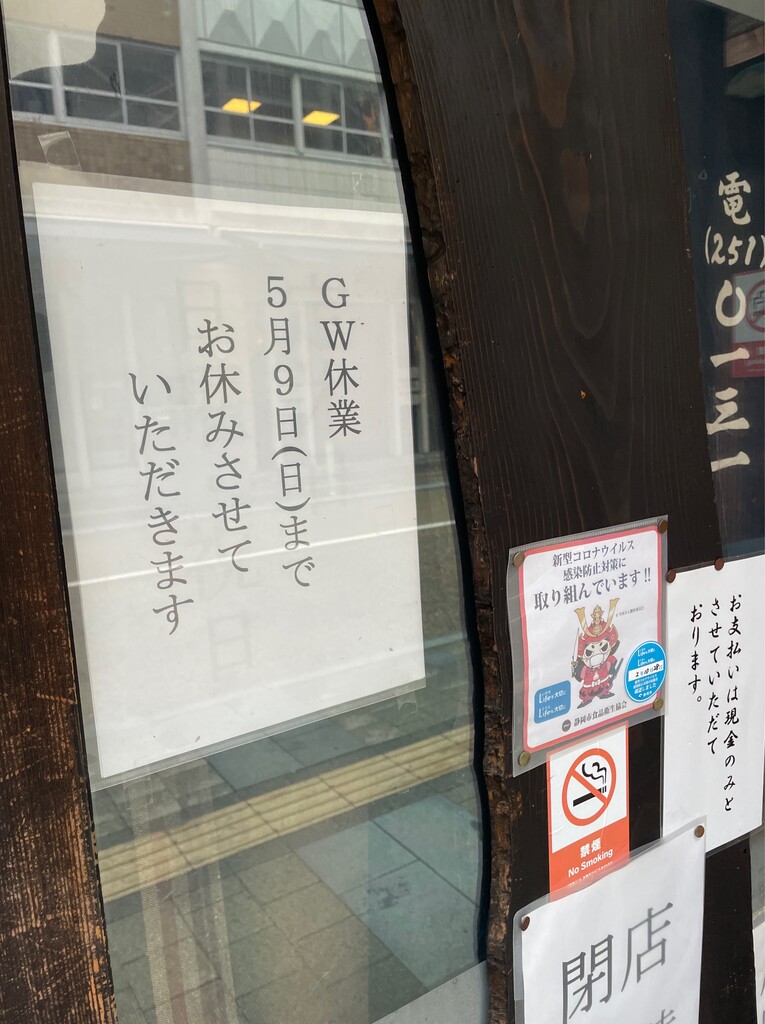 GW休業
5月9日(日)まで
お休みさせて
いただきます
電
(251)
〇一三一
新型コロナウイルス
感染防止対策に
取り組んでいます!!
静岡市食品衛生協会
禁煙
No Smoking
お支払いは現金のみと
させていただて
おります。
閉店